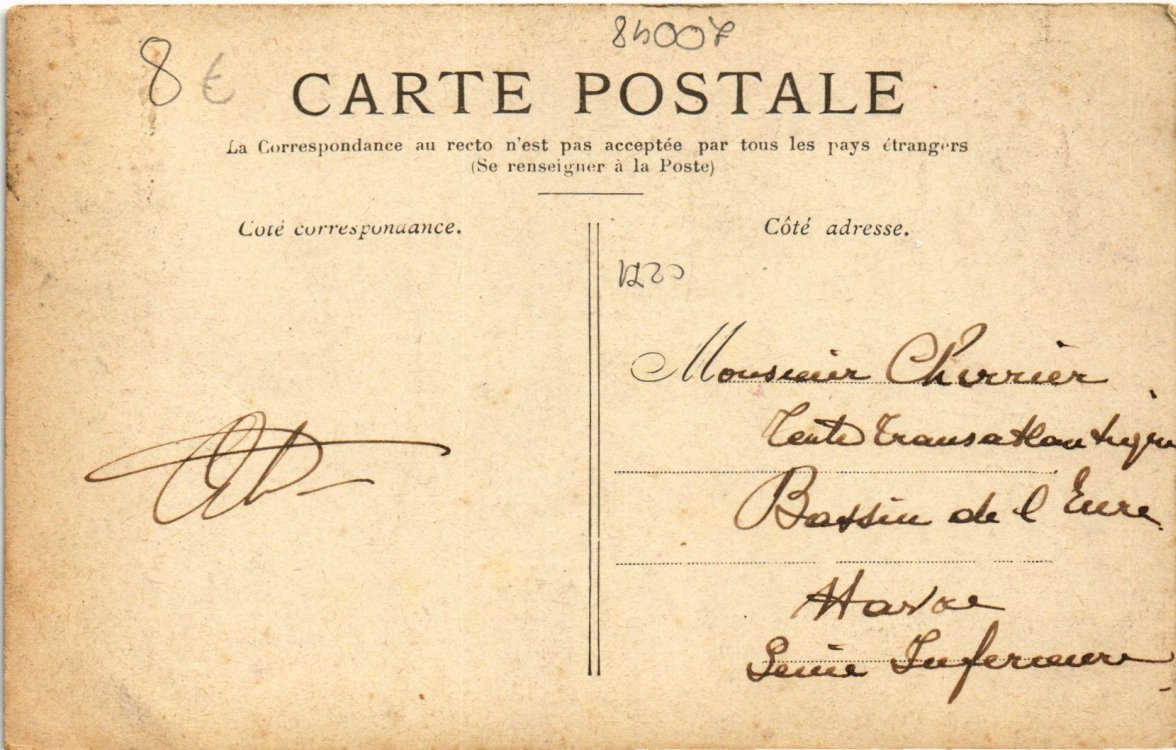 84007
8 €
CARTE POSTALE
La Correspondance au recto n'est pas acceptée par tous les pays étrangers
(Se renseigner à la Poste)
Côté correspondance.
Côté adresse.
Monsieur Cherrier
Tente Transatlantique
Bassin de l'Eure
Havre
Seine Inferieure